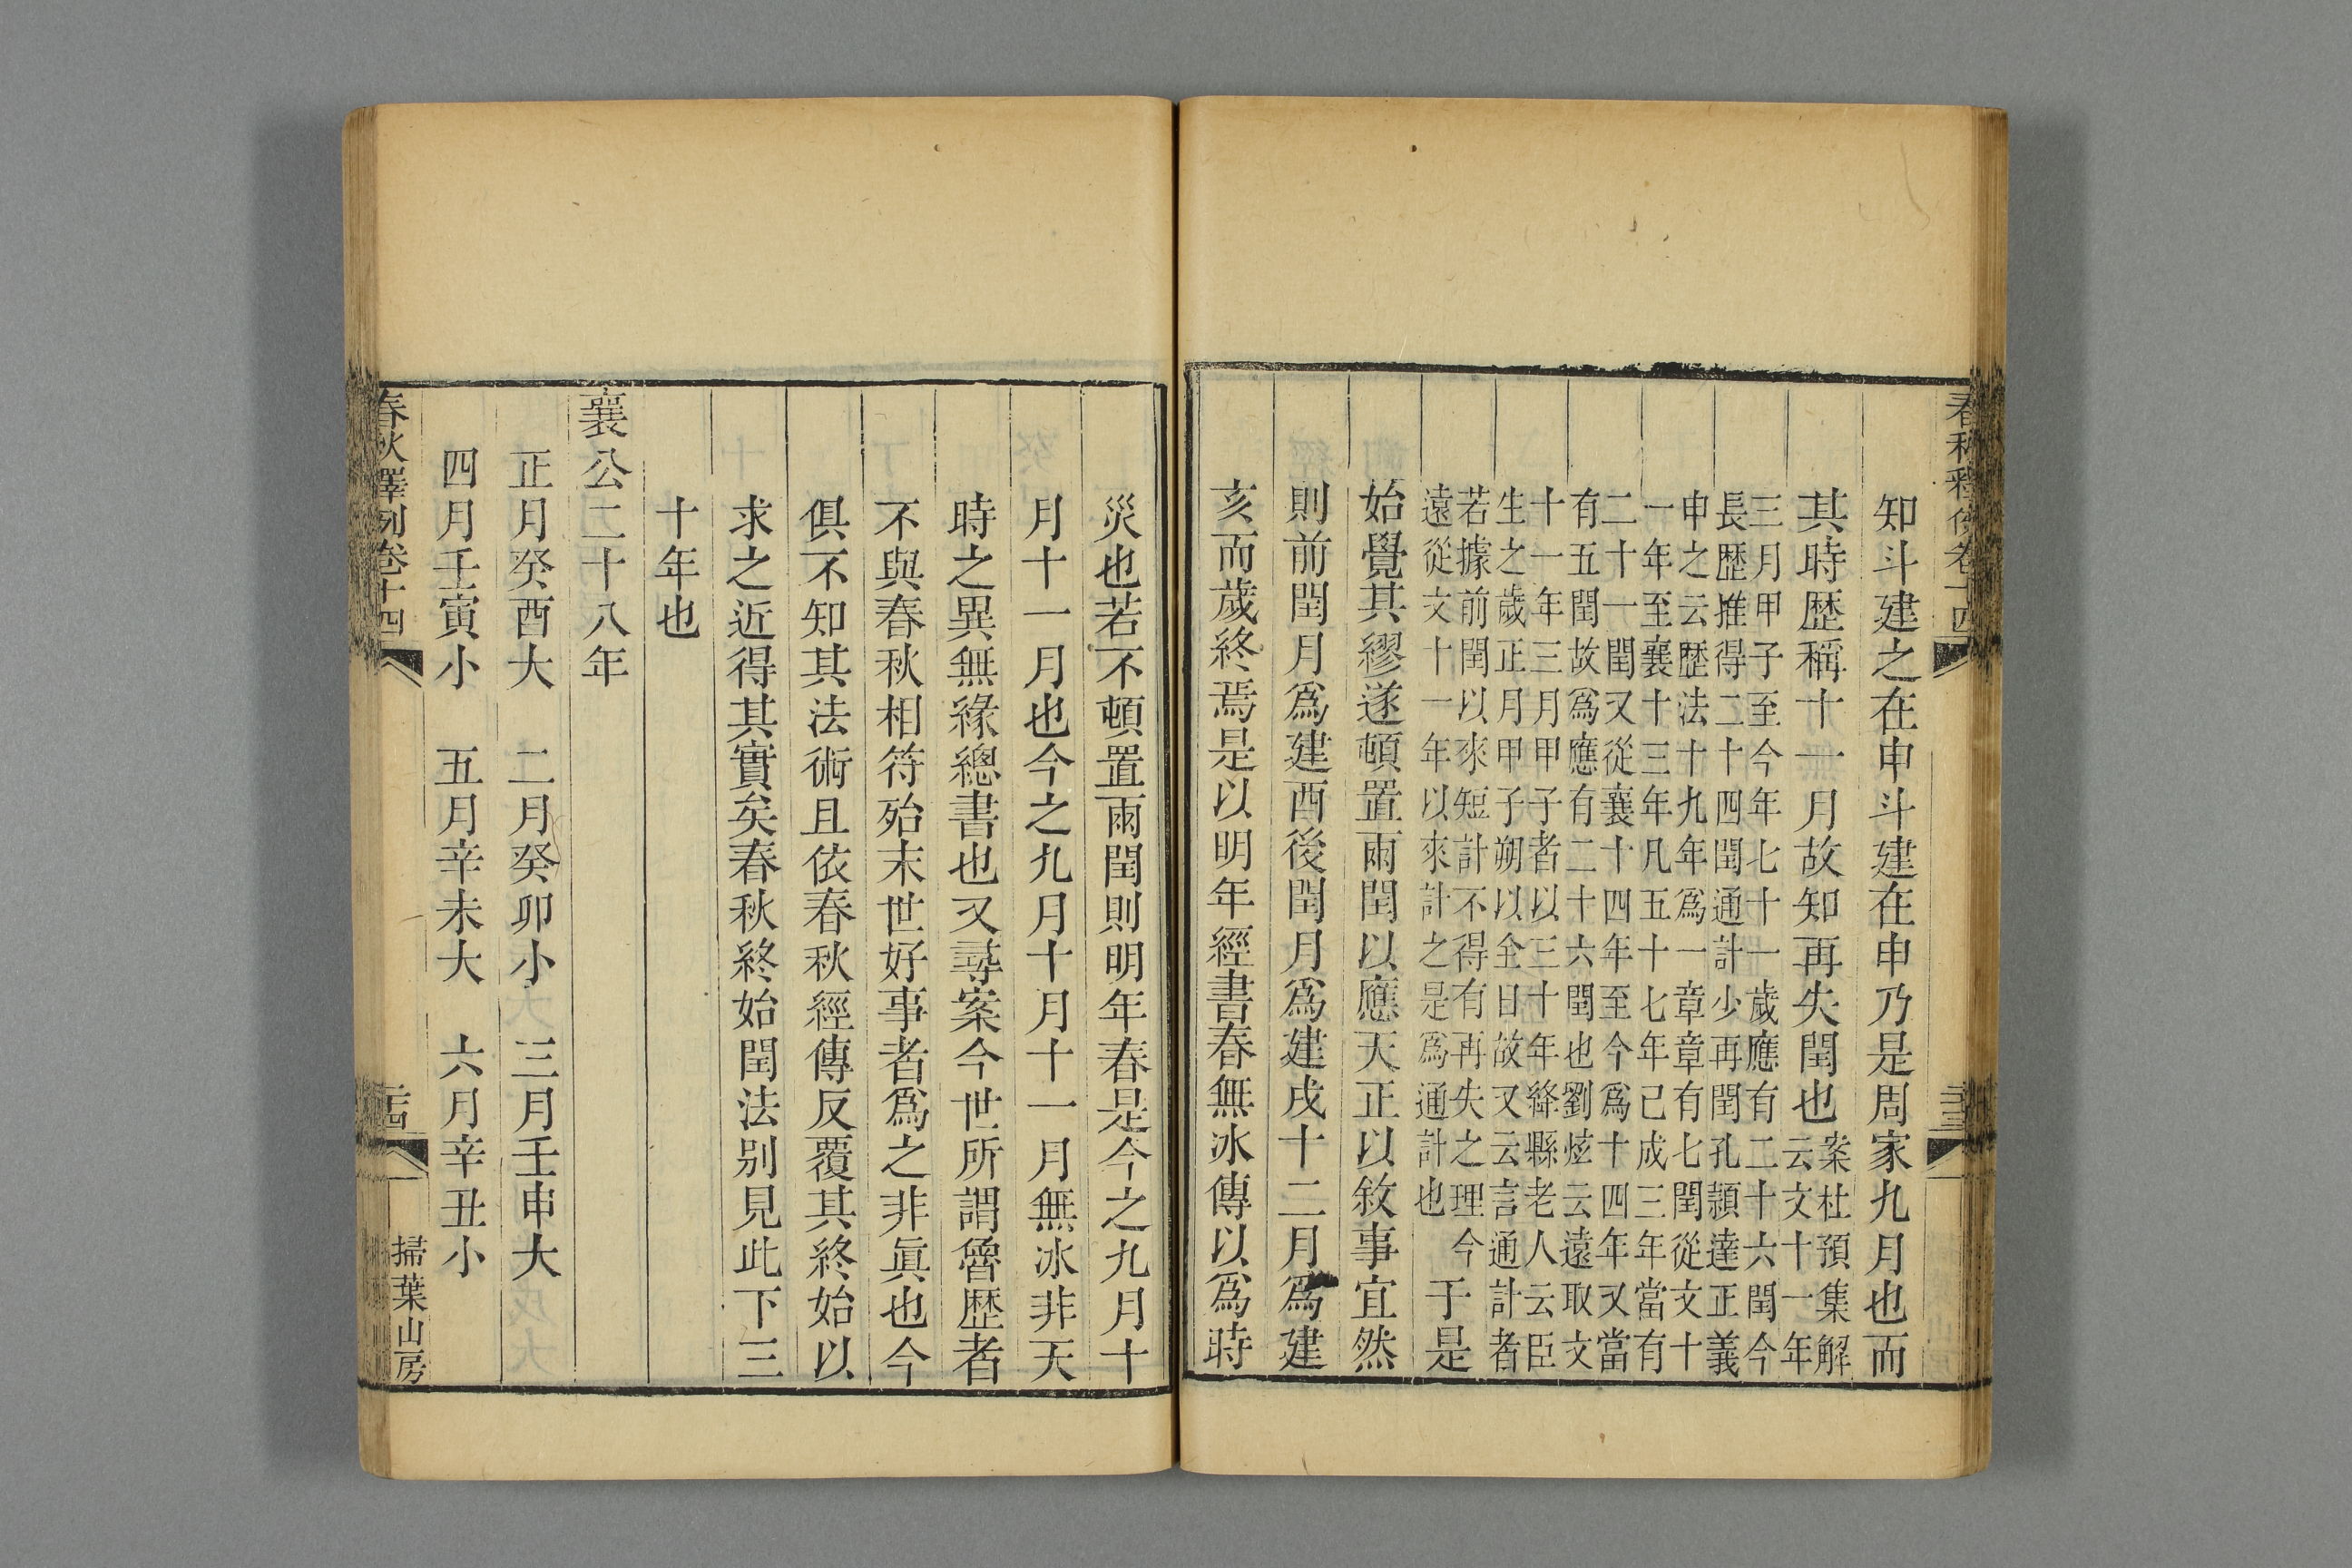 春秋釋例卷十四
知斗建之在申斗建在申乃是周家九月也而
其時歷稱十一月故知再失閏也案杜預集解
云文十一年
三月甲子至今年七十一歲應有二十六閏今
長歷推得二十四閏通計少再閏孔頴達正義
申之云歷法十九年爲一章章有七閏從文十
一年至襄十三年凡五十七年已成三年當有
二十一閏又從襄十四年至今爲十四年又當
有五閏故爲應有二十六閏也劉炫云遠取文
十一年三月甲子者以三十年絳縣老人云臣
生之歲正月甲子朔以全日故又云言通計者
若據前閏以來短計不得有再失之理今
遠從文十一年以來計之是爲通計也
于是
始覺其繆遂頓置兩閏以應天正以敘事宜然
則前閏月爲建酉後閏月爲建戌十二月爲建
亥而歲終焉是以明年經書春無冰傳以爲時
災也若不頓置兩閏則明年春是今之九月十
月十一月也今之九月十月十一月無冰非天
時之異無緣總書也又尋案今世所謂魯歷者
不與春秋相符殆末世好事者爲之非眞也今
俱不知其法術且依春秋經傳反覆其終始以
求之近得其實矣春秋終始閏法別見此下三
十年也
襄公二十八年
正月癸酉大　二月癸卯小　三月壬申大
四月壬寅小　五月辛未大　六月辛丑小
春秋釋例卷十四
掃葉山房